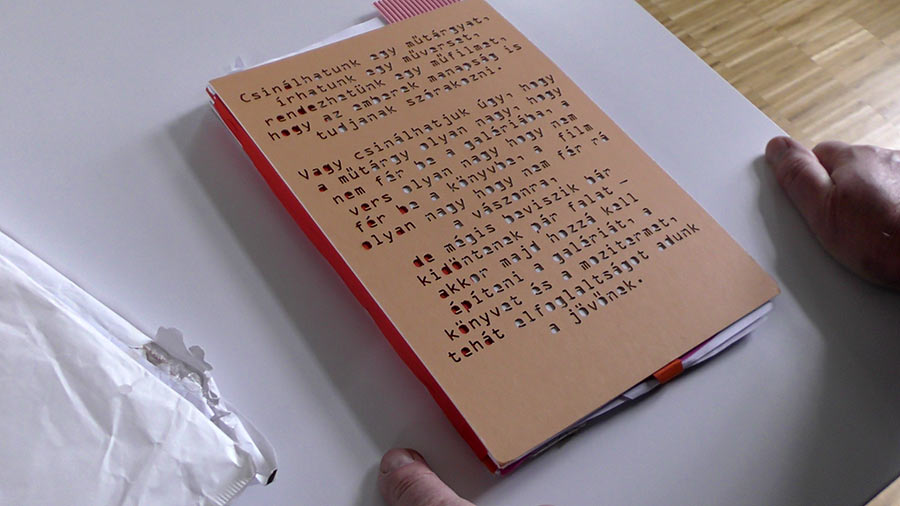 Csinálhatunk egy műtárgyat,
írhatunk egy műverset,
rendezhetünk egy műfilmet,
hogy az emberek manapság is
tudjanak szórakozni.
Vagy csinálhatjuk úgy, hogy
a műtárgy olyan nagy, hogy
nem fér be a galériába, a
vers olyan nagy hogy nem
fér be a könyvbe, a film
olyan nagy hogy nem fér rá
a vászonra,
de mégis beviszik bár
kidöntenek pár falat –
akkor majd hozzá kell
építeni a galériát a
könyvet és a mozitermet,
tehát elfoglaltságot adunk
a jövőnek.